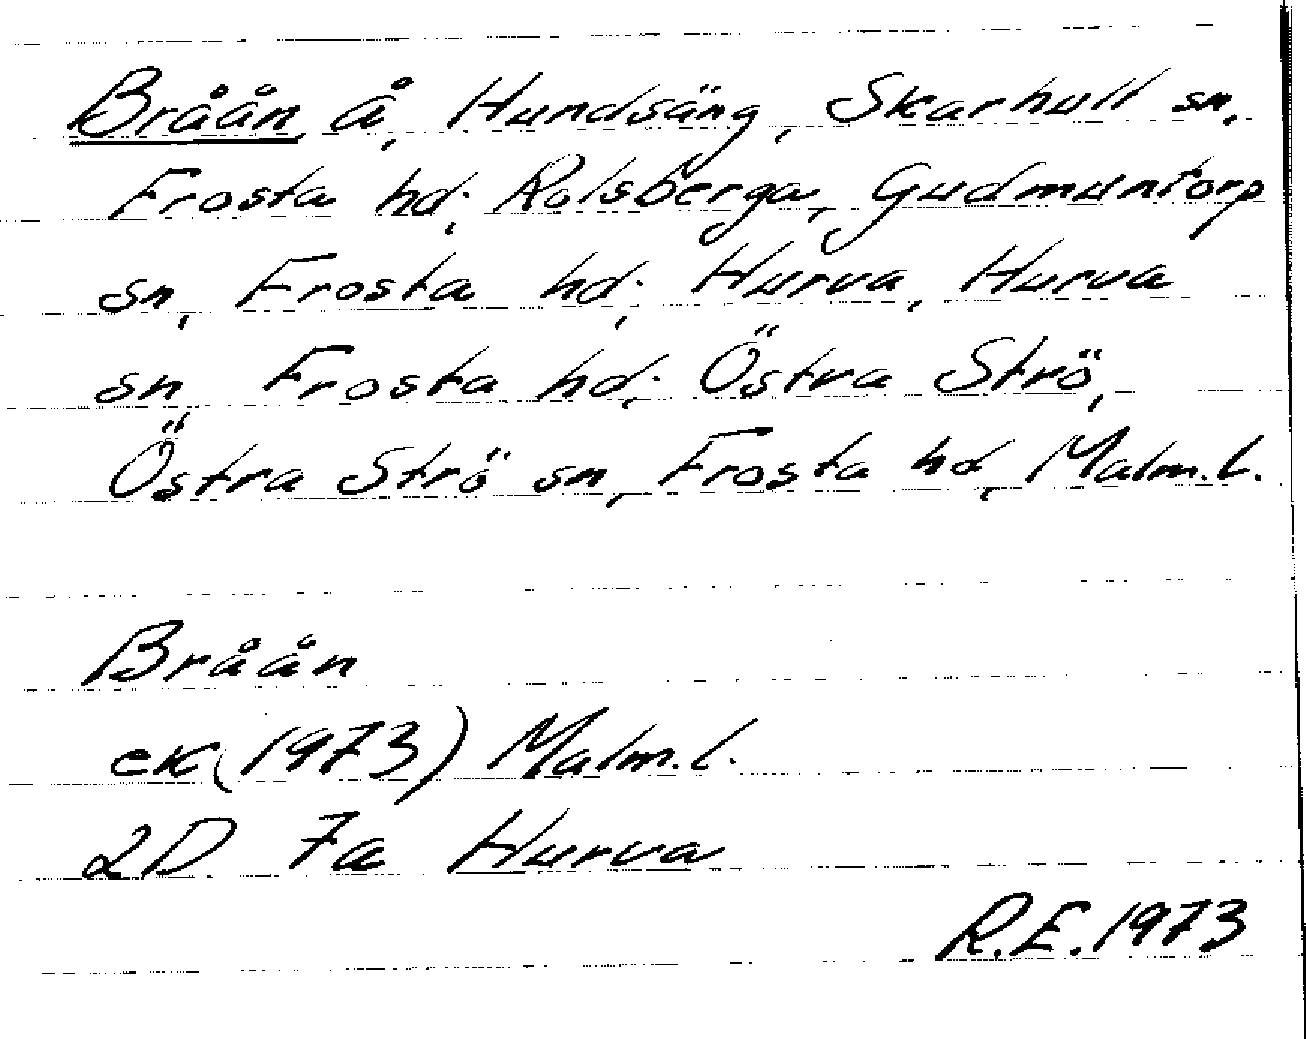 Bråån, å, Hundsäng, Skarhult sn,
Frosta hd; Rolsberga, Gudmuntorp
sn, Frosta hd; Hurva, Hurva
sn, Frosta hd; Östra Strö,
Östra Strö sn, Frosta hd, Malm.l.
Bråån
ek (1973) Malm.l.
2D 7a Hurva
R.E. 1973